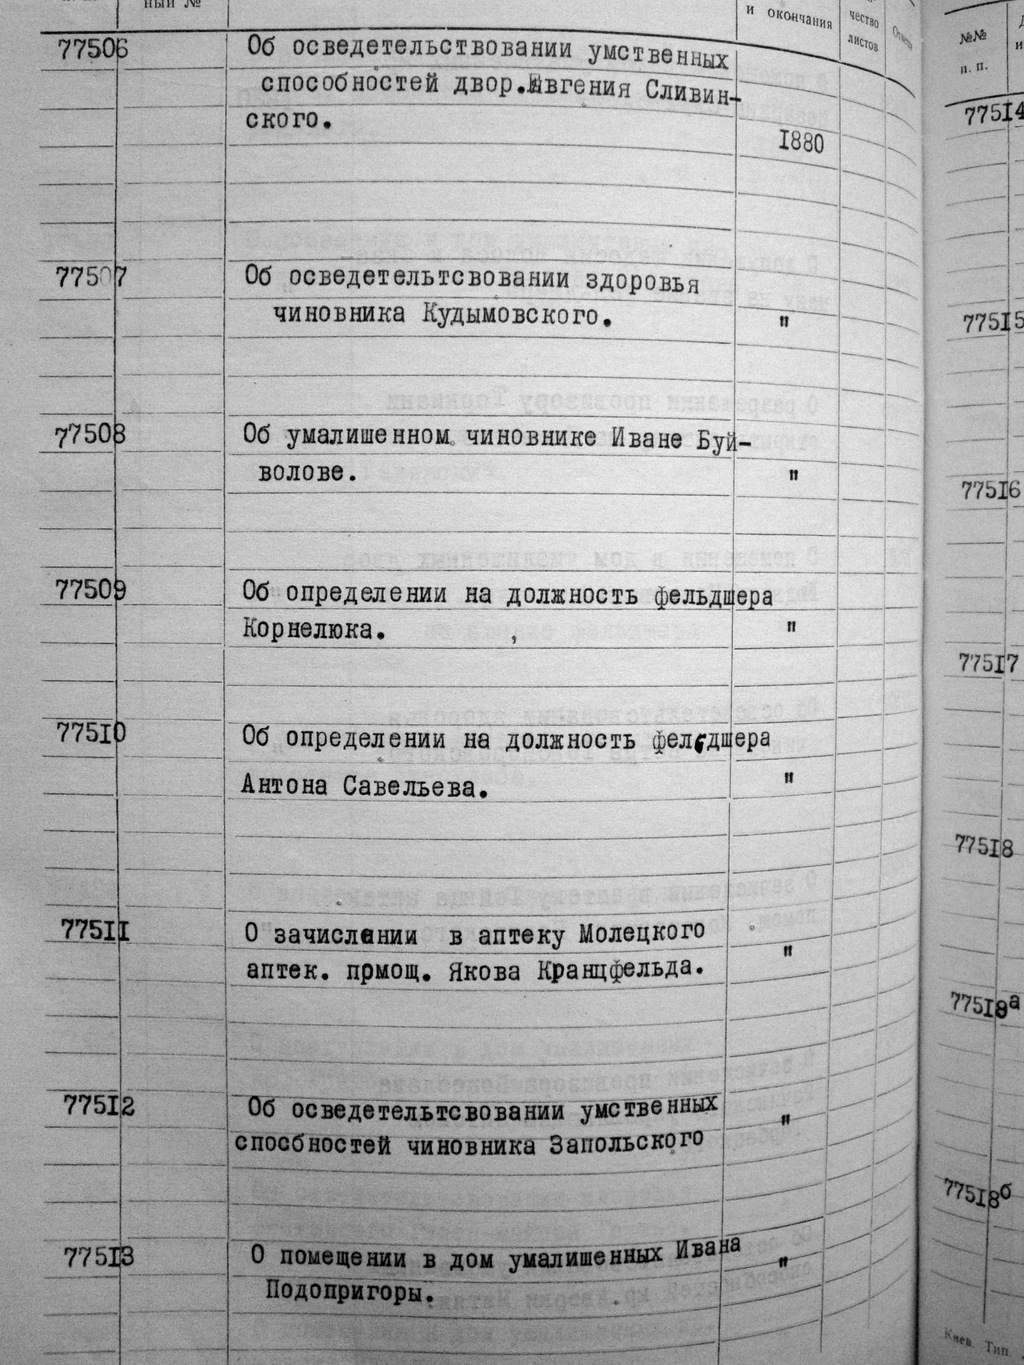 ный №
и окончания
чество
листов
77506 Об осведетельствовании умственных
способностей двор.Евгения Сливин-
ского.
1880
77507 Об осведетельтсвовании здоровья
чиновника Кудымовского. "
77508 Об умалишенном чиновнике Иване Буй-
волове. "
77509 Об определении на должность фельдшера
Корнелюка. , "
77510 Об определении на должность фельдшера
Антона Савельева. "
77511 О зачислении в аптеку Молецкого
аптек. прмощ. Якова Кранцфельда. "
77512 Об осведетельтсвовании умственных
спосбностей чиновника Запольского "
77513 О помещении в дом умалишенных Ивана
Подопригоры. "
№№
п. п.
77514
77515
77516
77517
77518
77518а
77518б
Киев. Тип.